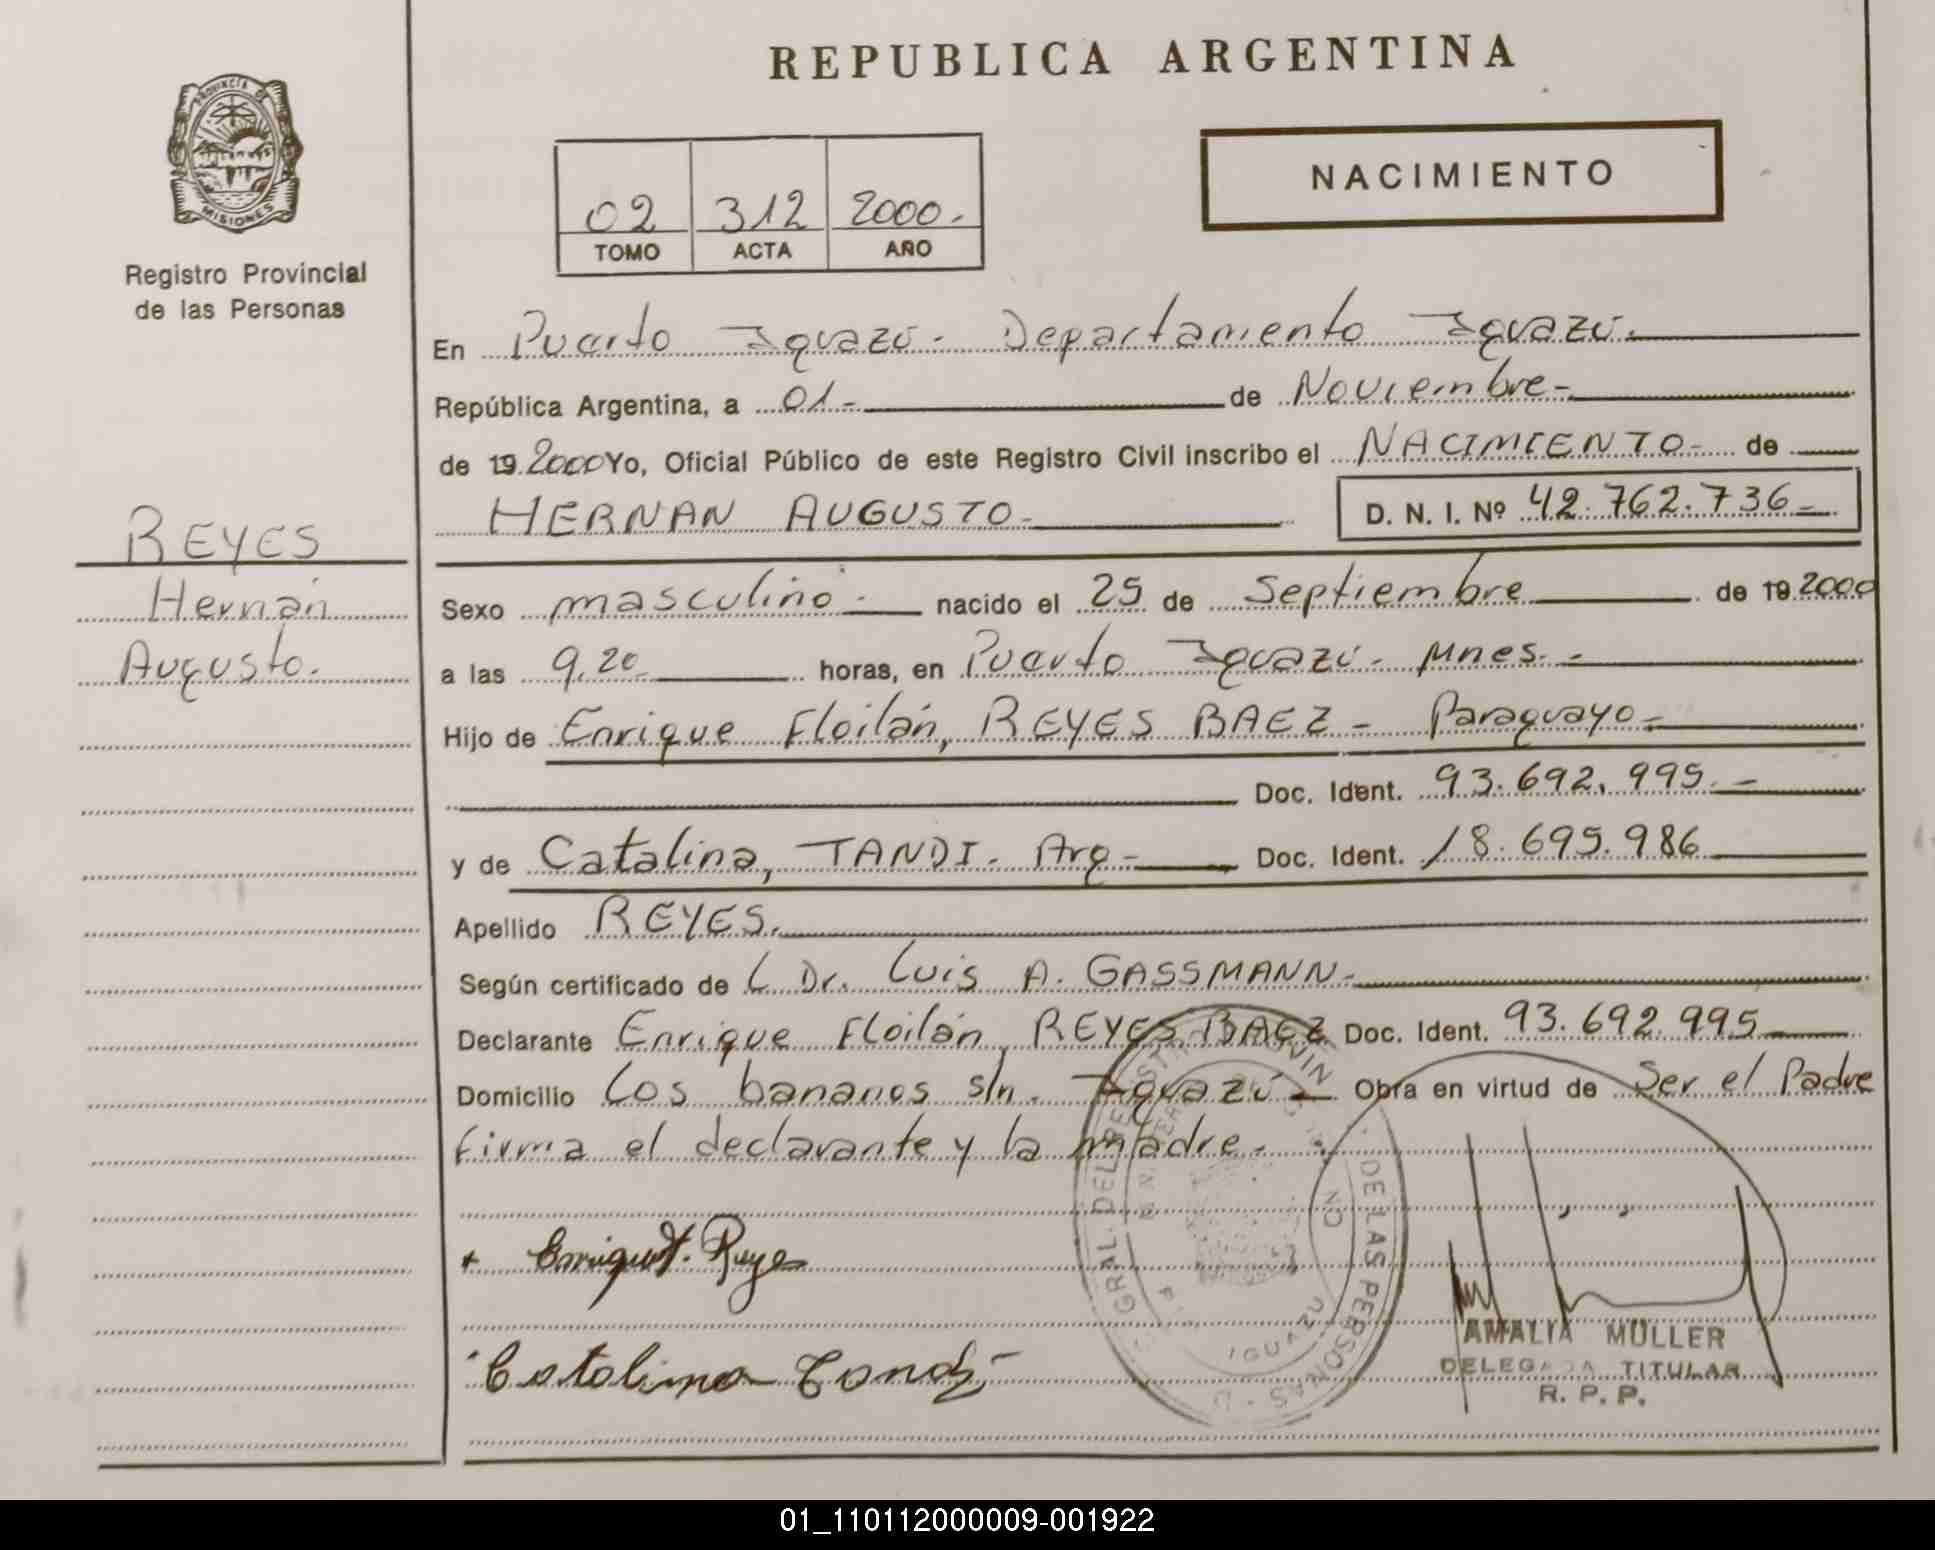 REPUBLICA ARGENTINA
PROVINCIA DE
MISIONES
Registro Provincial
de las Personas
NACIMIENTO
02 312 2000.-
TOMO ACTA AÑO
En Puerto Iguazú - Departamento Iguazú.
República Argentina, a 01.- de Noviembre-
de 19 2000 Yo, Oficial Público de este Registro Civil inscribo el NACIMIENTO- de
HERNAN AUGUSTO- D. N. I. Nº 42.762.736-
REYES
Hernán
Augusto.
Sexo masculino.- nacido el 25 de Septiembre de 19 2000
a las 9,20 horas, en Puerto Iguazú- Mnes.-
Hijo de Enrique Floilán, REYES BAEZ - Paraguayo-
Doc. Ident. 93.692.995.-
y de Catalina, TANDI. Arg- Doc. Ident. 18.695.986
Apellido REYES.
Según certificado de Dr. Luis A. GASSMANN.-
Declarante Enrique Floilán, REYES BAEZ Doc. Ident. 93.692.995
Domicilio Los bananos s/n. Iguazú - Obra en virtud de Ser el Padre
firma el declarante y la madre.-
Reyes
Catalina
GRAL. DEL DE LAS PERSONAS
IGUAZU
AMALIA MULLER
DELEGADA TITULAR
R. P. P.
01_110112000009-001922